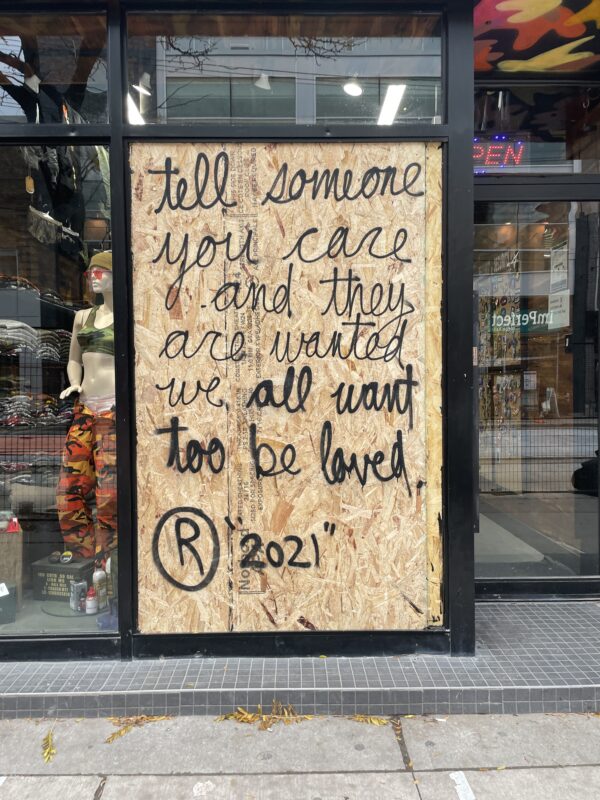 tell someone
you care
and they
are wanted
we all want
too be loved.
® "2021"
PEN
imPerfect